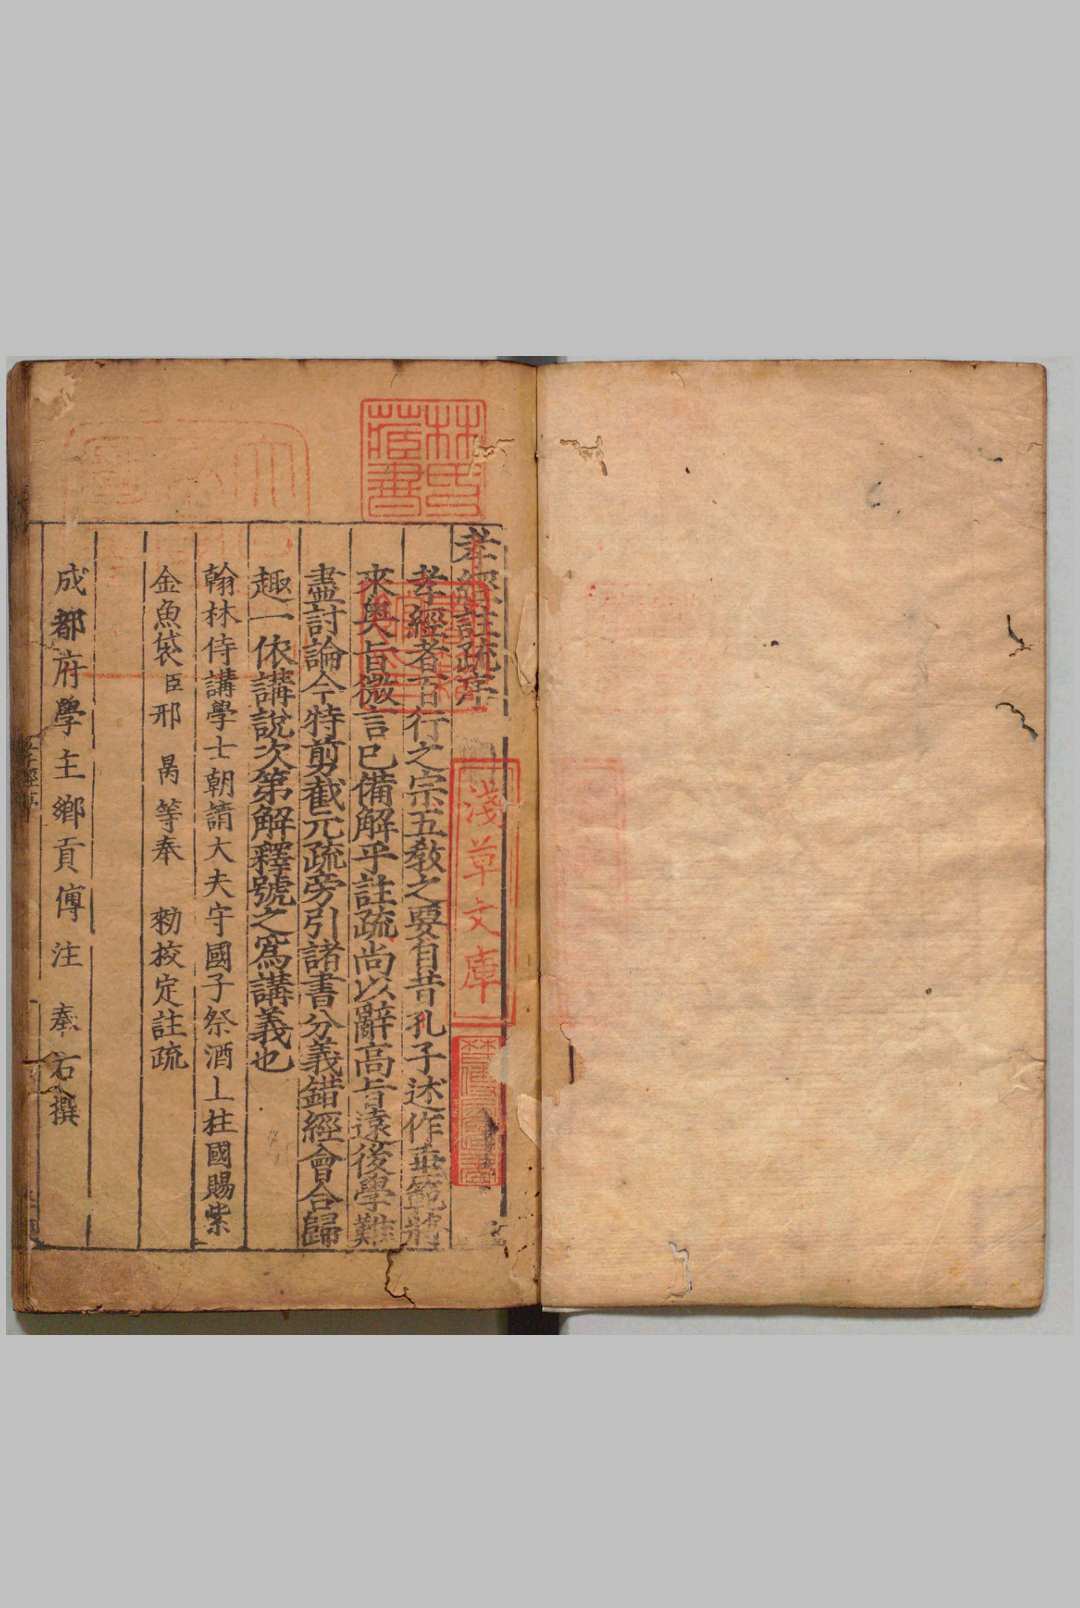 孝經註疏序
孝經者百行之宗五敎之要自昔孔子述作垂範將
來奥旨微言已備解乎註疏尚以辭高旨遠後學難
盡討論今特剪截元疏旁引諸書分義錯經會合歸
趣一依講說次第解釋號之爲講義也
翰林侍講學士朝請大夫守國子祭酒上柱國賜紫
金魚袋臣邢昺等奉勑挍定註疏
成都府學主鄉貢傅注奉右撰
林氏藏書
淺草文庫